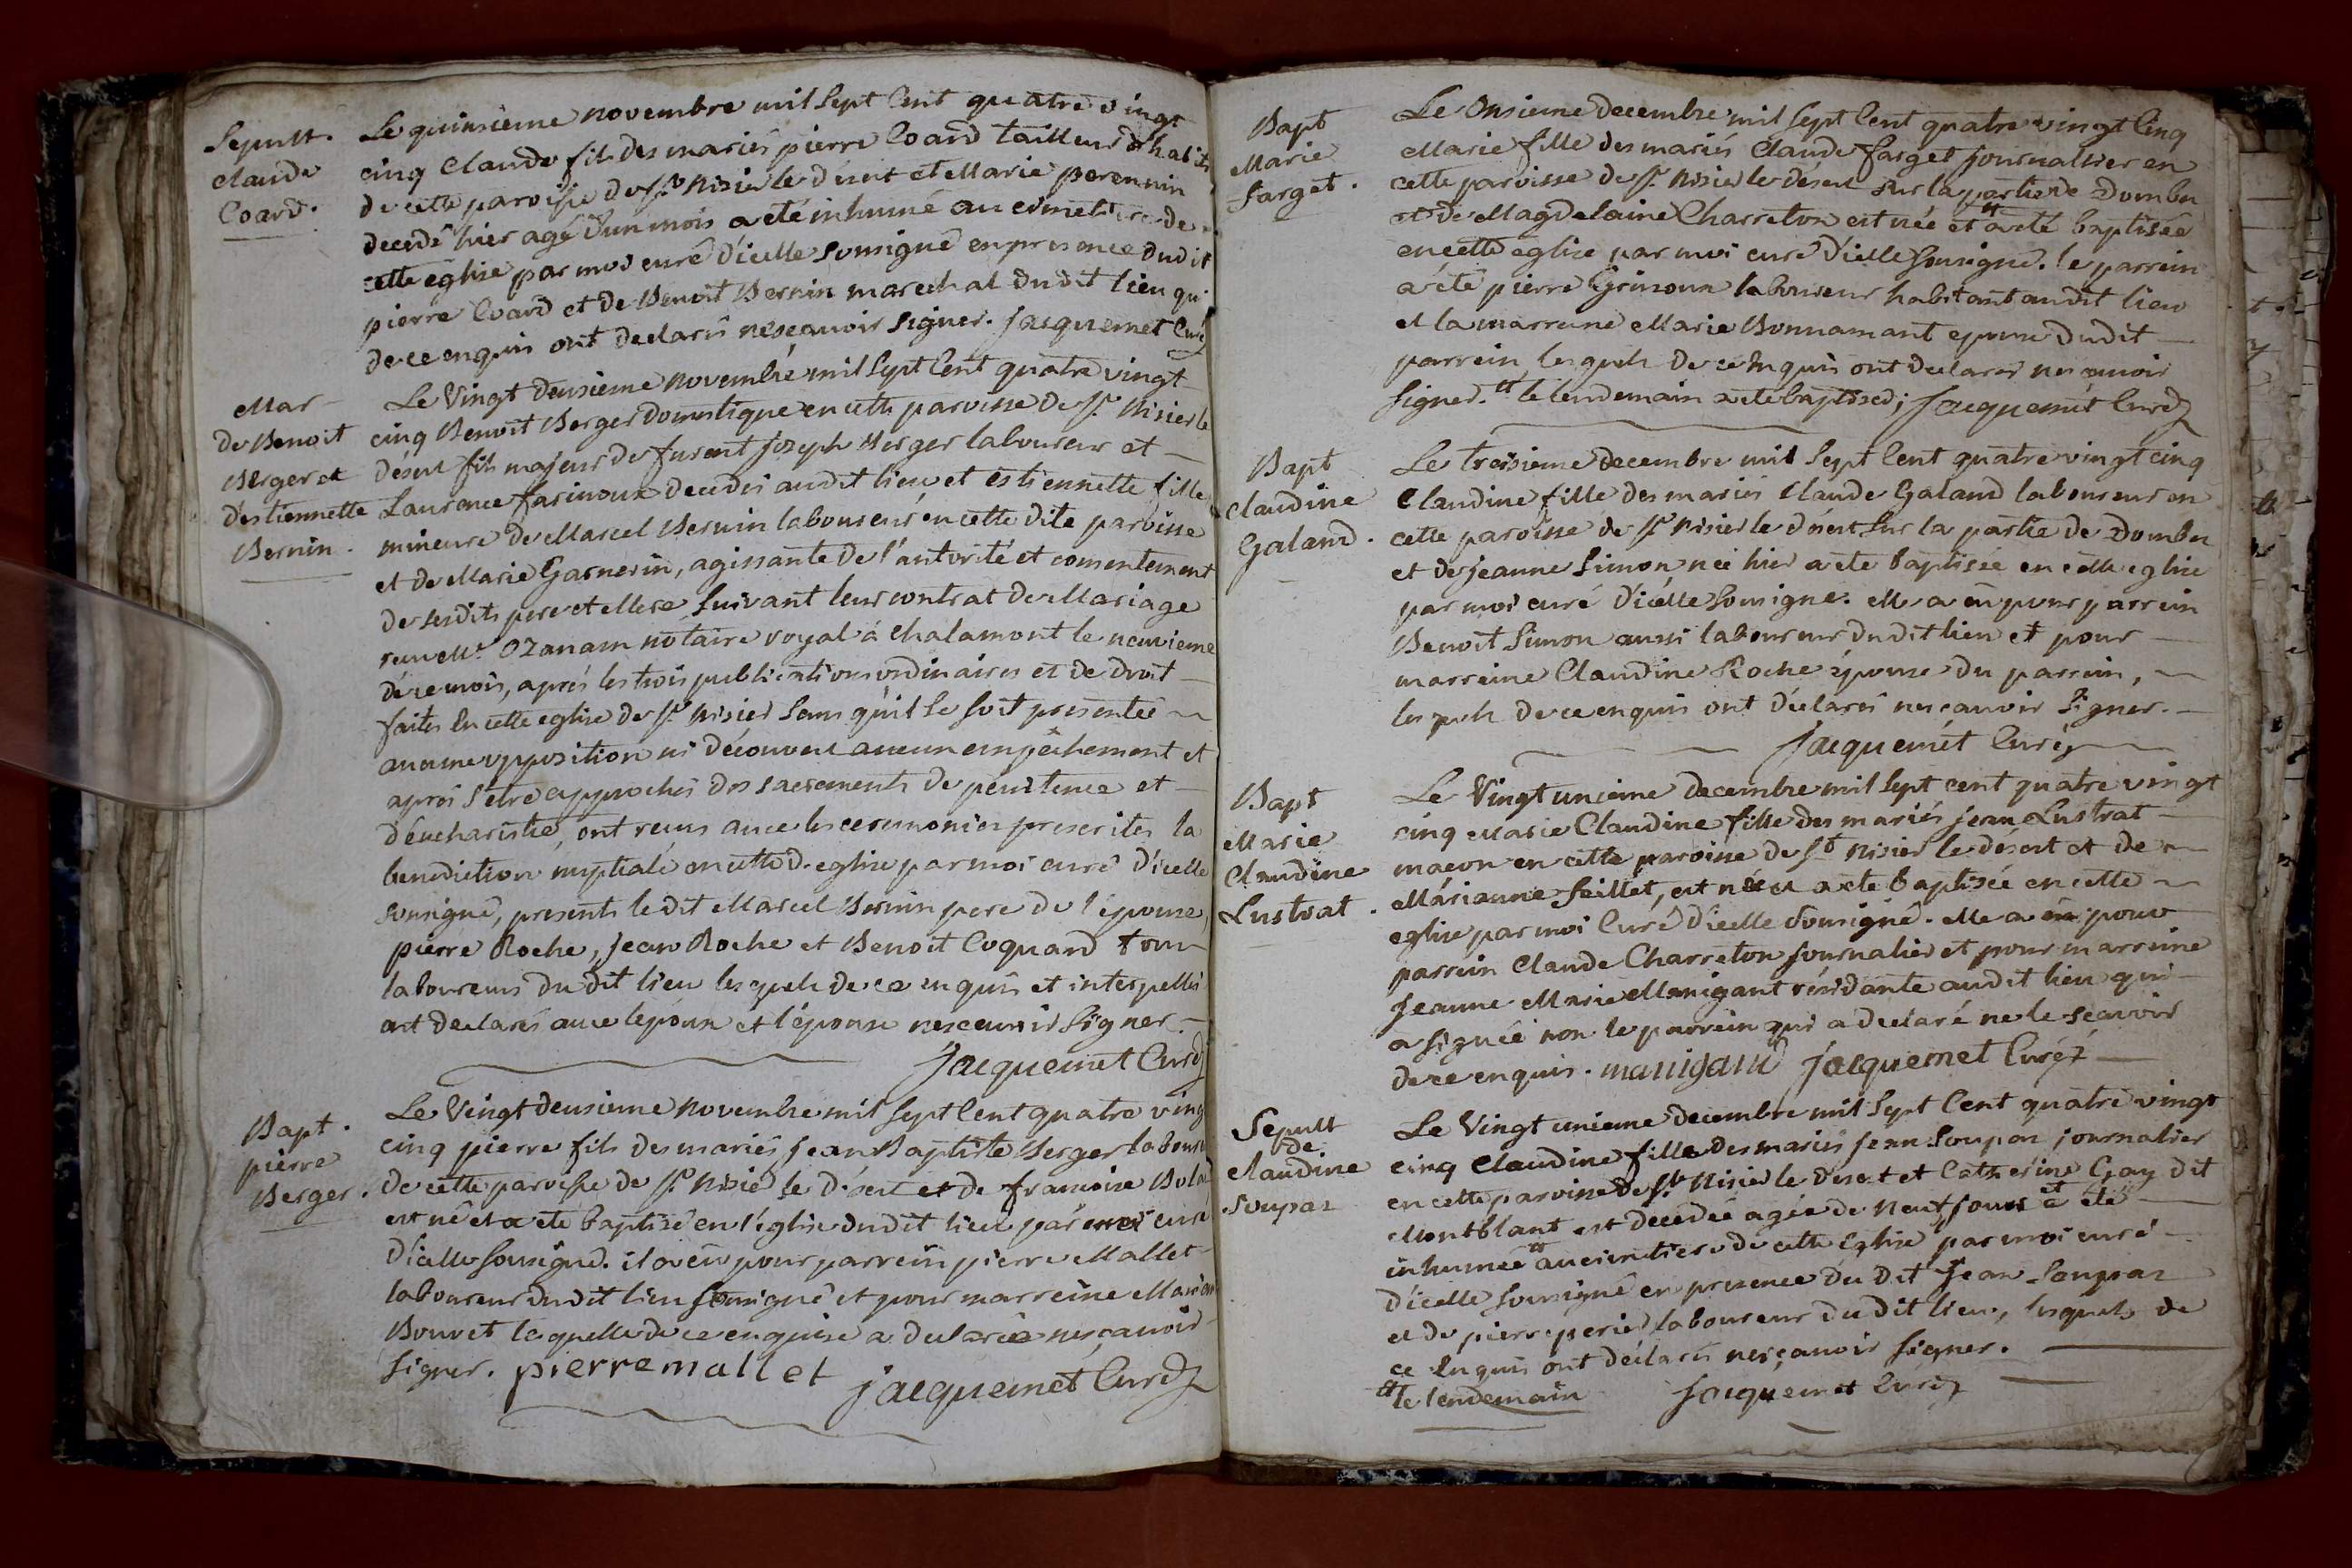 Sepult.
claude
Coard.
Le quinsieme novembre mil sept cent quatre vingt
cinq claude fils des mariés pierre Coard tailleur d'habits
de cette paroisse de st nisier le désert et Marie perennin
decedé hier agé d'un mois a eté inhumé au cimetiere de
cette eglise par moi curé d'icelle soussigné en presence dudit
pierre Coard et de Benoit Bernin marechal dudit lieu qui
de ce enquis ont declarés ne sçavoir signer. Jacquemet Curé
Mar
de Benoit
Berger et
d'estiennette
Bernin.
Le Vingt deusieme novembre mil sept cent quatre vingt
cinq Benoit Berger domestique en cette paroisse de st Nisier le
désert fils majeur de furent joseph Berger laboureur et
Laurence farinoux decedés audit lieu et estiennette fille
mineure de Marcel Bernin laboureur en cette dite paroisse
et de Marie Garnerin, agissante de l'autorité et consentement
de sesdits pere et Mere suivant leur contrat de Mariage
reçu Me Ozanam notaire royal à chalamont le neuvieme
de ce mois, aprés les trois publications ordinaires et de droit
faites en cette eglise de st nisier sans qu'il se soit presentée
aucune opposition ni découvert aucun empêchement et
aprés s'etre approchés des sacrements de penitence et
d'eucharistie, ont reçus avec les ceremonies prescrites la
benediction nuptiale en cette d. eglise par moi curé d'icelle
soussigné, presents le dit Marcel Bernin pere de l'épouse,
pierre Roche, jean Roche et Benoit Coquand tous
laboureurs du dit lieu lesquels de ce enquis et interpellés
ont declarés avec l'époux et l'épouse ne sçavoir signer.
Jacquemet Curé
Bapt.
pierre
Berger.
Le Vingt deusieme novembre mil sept cent quatre vingt
cinq pierre fils des mariés jean Baptiste Berger labour
de cette paroisse de st Nisier le désert et de francoise
est né et a eté baptisé en l'église dudit lieu par moi curé
d'icelle soussigné. il a eu pour parrein pierre Mallet
laboureur dudit lieu soussigné et pour marreine
Bouvet laquelle de ce enquise a declarée ne sçavoir
signer. pierre mallet
jacquemet Curé
Bapt
Marie
farget.
Le Onsieme decembre mil sept cent quatre vingt cinq
Marie fille des mariés Claude farget journallier en
cette paroisse de st Nisier le désert sur la partie de Dombes
et de Magdelaine Charreton est née et a eté baptisée
en cette eglise par moi curé d'icelle soussigné. le parrein
a été pierre Grinoux laboureur habitant audit lieu
et la marreine Marie Bonnamant epouse dudit
parrein, lesquels de ce enquis ont declarés ne sçavoir
signer. le lendemain a eté baptisée; Jacquemet Curé
Bapt
Claudine
Galand.
Le treisieme decembre mil sept cent quatre vingt cinq
Claudine fille des mariés Claude Galand laboureur en
cette paroisse de st Nisier le désert sur la partie de Dombes
et de jeanne Simon née hier a eté baptisée en cette eglise
par moi curé d'icelle soussigné. elle a eu pour parrein
Benoit Simon aussi laboureur dudit lieu et pour
marreine Claudine Roche épouse du parrein,
lesquels de ce enquis ont déclarés ne sçavoir signer.
jacquemet Curé
Bapt
Marie
Claudine
Lustrat.
Le Vingt unieme decembre mil sept cent quatre vingt
cinq Marie Claudine fille des mariés jean Lustrat
maçon en cette paroisse de st nisier le désert et de
Marianne feillet, est née et a eté baptisée en cette
eglise par moi Curé d'icelle soussigné. elle a eu pour
parrein Claude Charreton journalier et pour marreine
Jeanne Marie Manigant résidante audit lieu qui
a signée non le parrein qui a declaré ne le sçavoir
de ce enquis. manigand Jacquemet Curé
Sepult
de
claudine
Soupas
Le Vingt unieme decembre mil sept cent quatre vingt
cinq Claudine fille des mariés jean Soupas journalier
en cette paroisse de st Nisier le désert et Catherine Gay dit
Montblant est decedée agée de neuf jours et a eté
inhumée au cimetiere de cette Eglise par moi curé
d'icelle soussigné en presence du dit Jean Soupas
et de pierre perier laboureur du dit lieu, lesquels de
ce enquis ont déclarés ne sçavoir signer.
le lendemain Jacquemet Curé